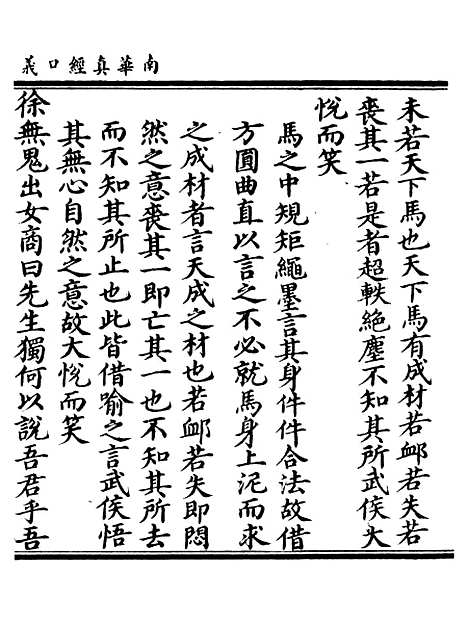 南華真經口義
未若天下馬也天下馬有成材若䘏若失若
喪其一若是者超軼絕塵不知其所武侯大
悅而笑
馬之中規矩繩墨言其身件件合法故借
方圓曲直以言之不必就馬身上泥而求
之成材者言天成之材也若䘏若失即悶
然之意喪其一即亡其一也不知其所去
而不知其所止也此皆借喻之言武侯悟
其無心自然之意故大悅而笑
徐無鬼出女商曰先生獨何以說吾君乎吾